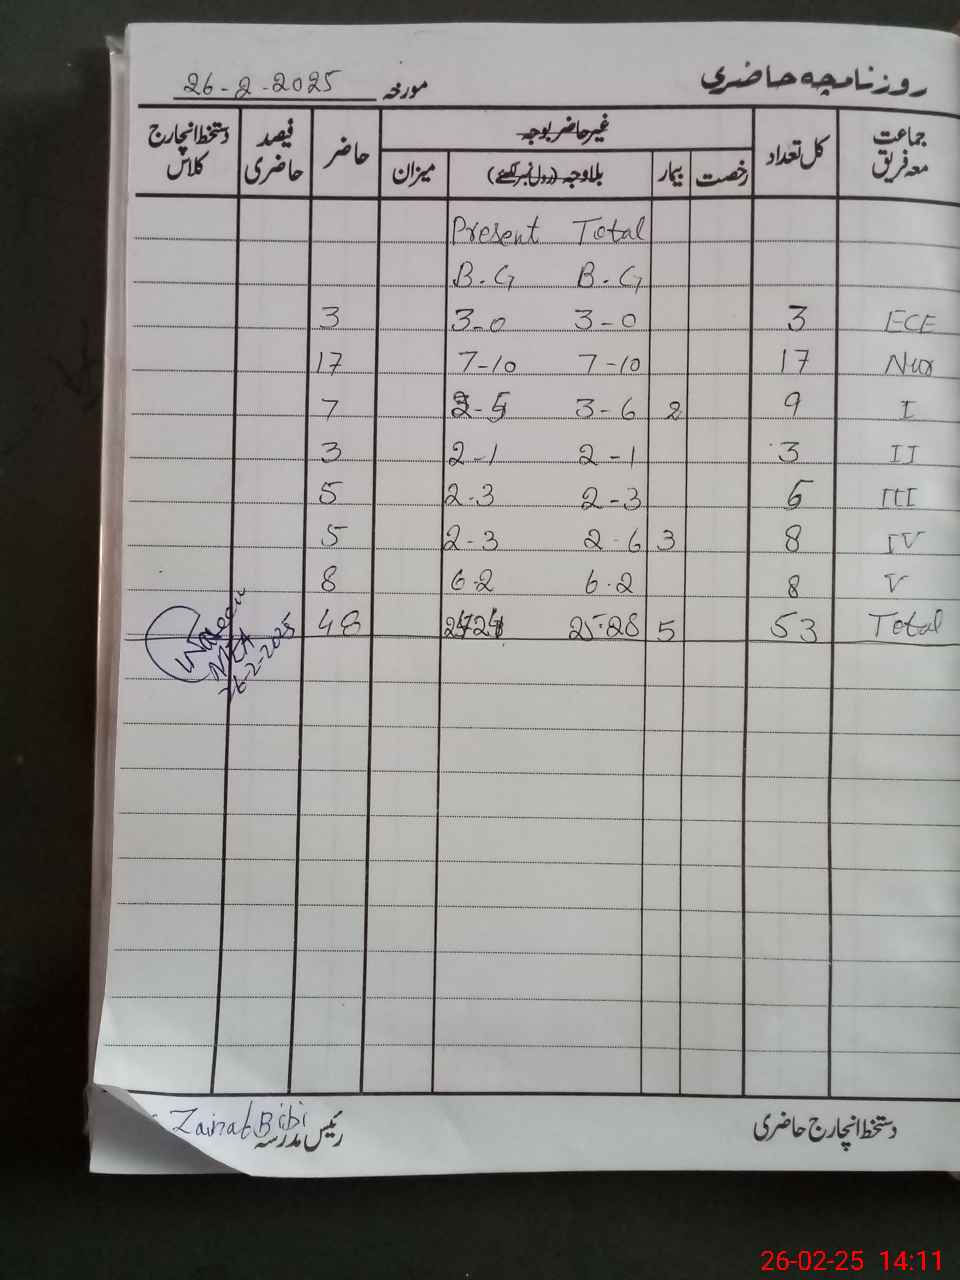 روزنامچہ حاضری مورخہ 26-2-2025
جماعت معہ فریق کل تعداد غیر حاضر بوجہ رخصت بیمار بلاوجہ (رول نمبر لکھئے) میزان حاضر فیصد حاضری دستخط انچارج کلاس
Present Total
B.G B.G
3 3-0 3-0 3 ECE
17 7-10 7-10 17 Nur
7 2-5 3-6 2 9 I
3 2-1 2-1 3 II
5 2-3 2-3 5 III
5 2-3 2-6 3 8 IV
8 6-2 6-2 8 V
48 24-24 25-28 5 53 Total
26-2-2025
دستخط انچارج حاضری رئیس مدرسہ Zainat Bibi
26-02-25 14:11